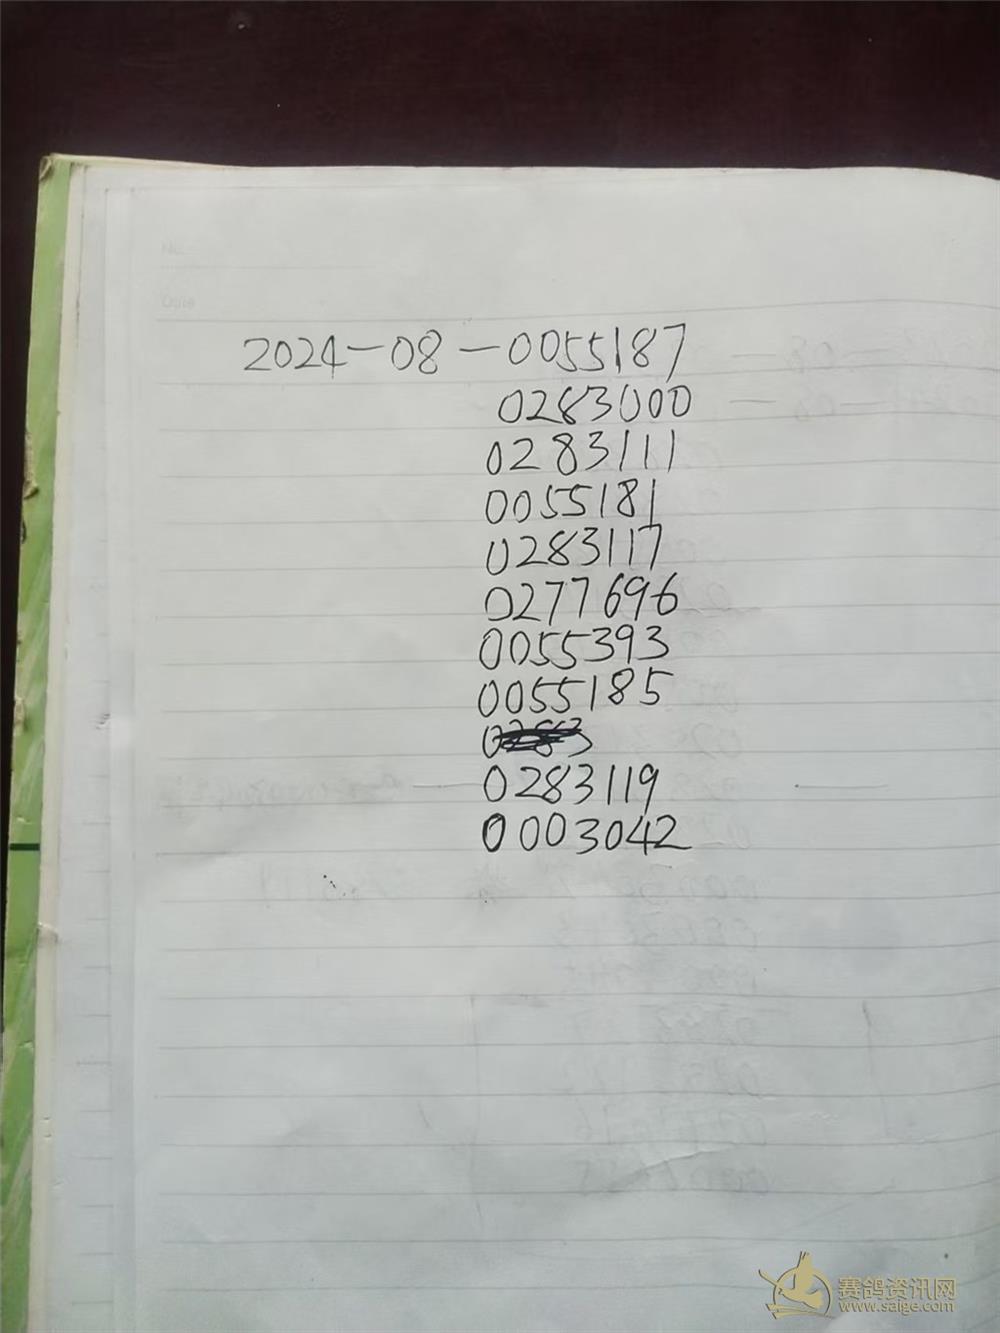 No.
Date
2024-08-0055187
0283000
0283111
0055181
0283117
0277696
0055393
0055185
0283
0283119
0003042
赛鸽资讯网
www.saige.com